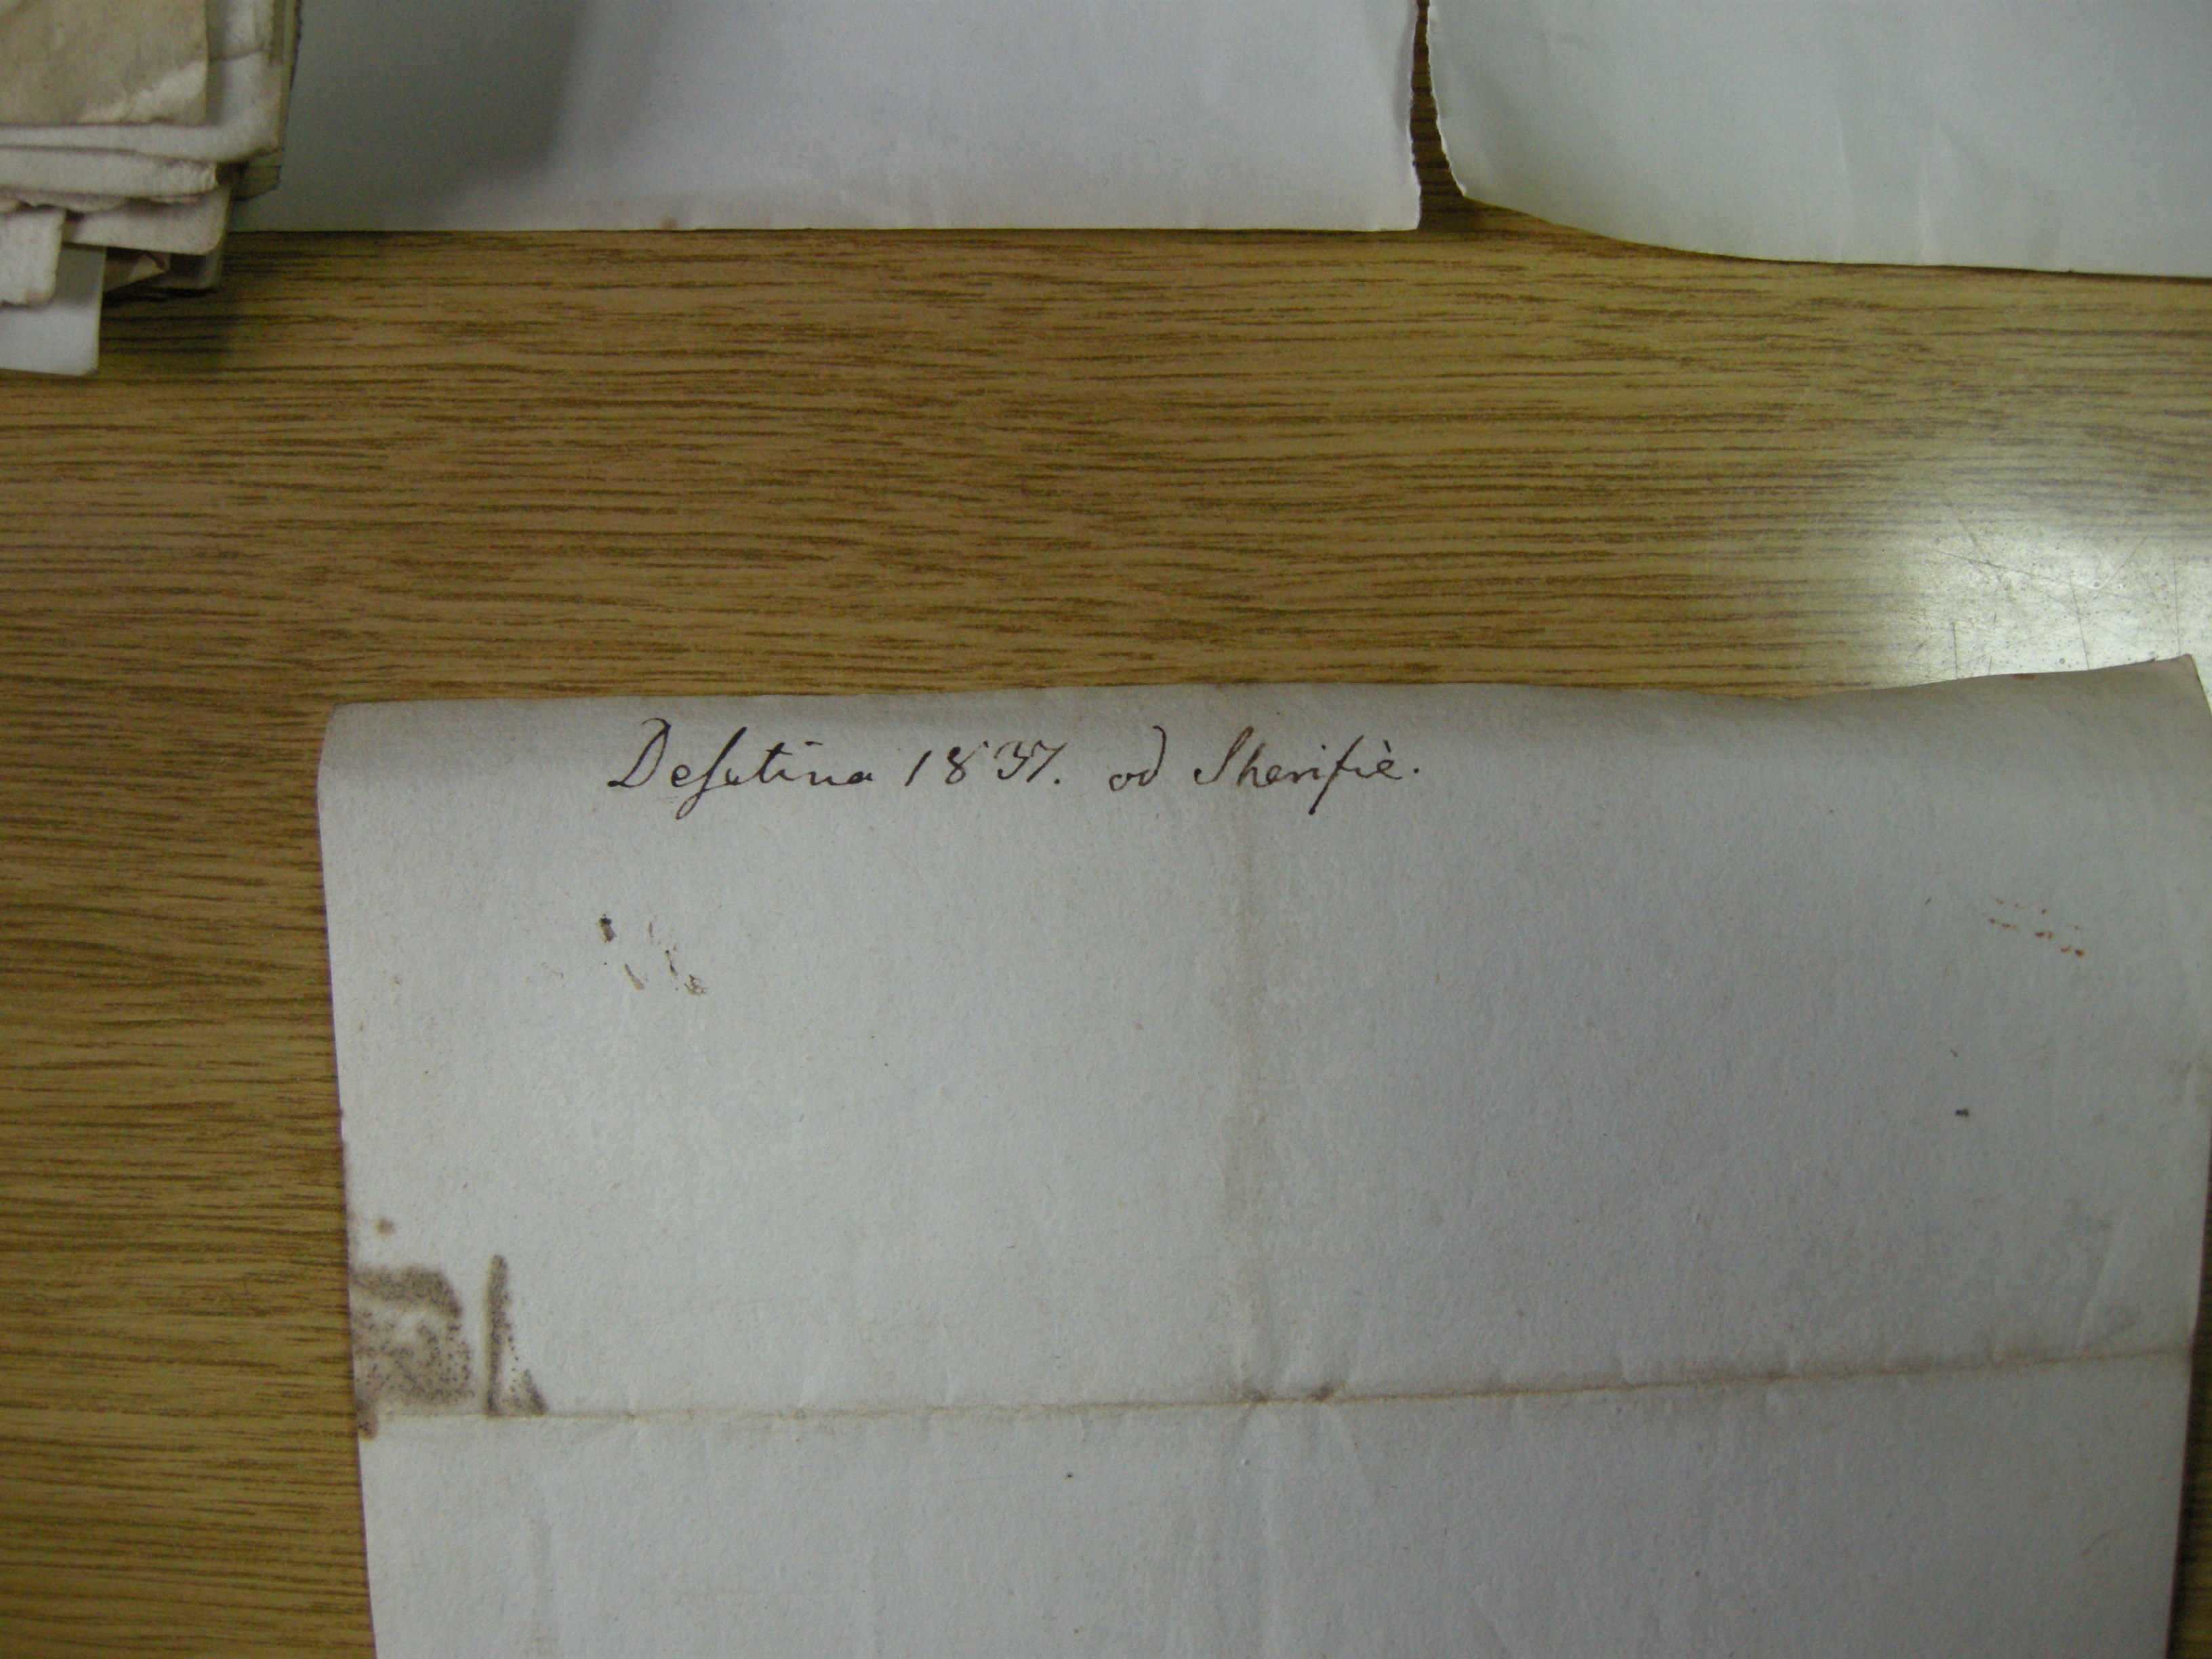 Desetina 1837. od Sherifiè.